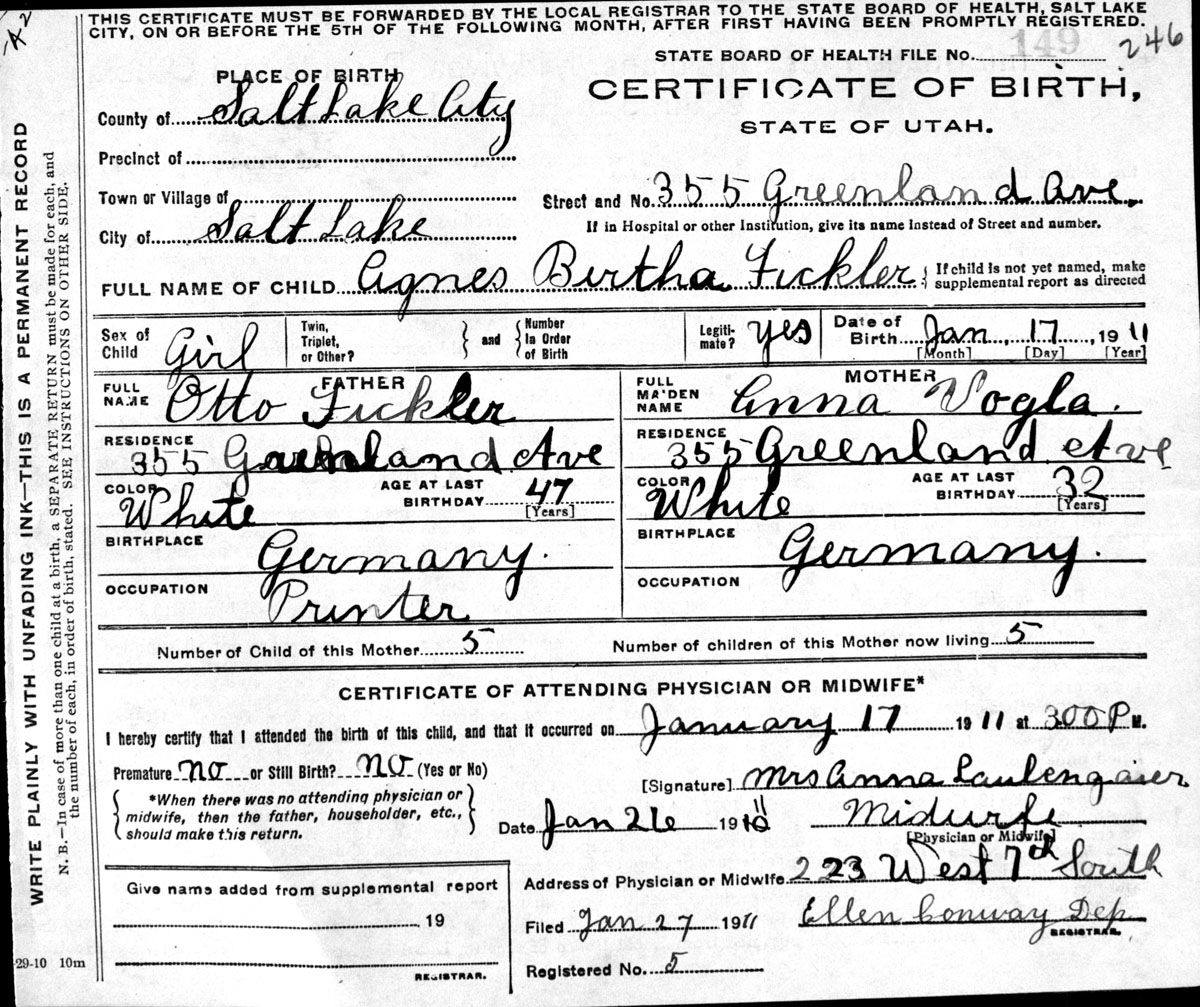 THIS CERTIFICATE MUST BE FORWARDED BY THE LOCAL REGISTRAR TO THE STATE BOARD OF HEALTH, SALT LAKE
CITY, ON OR BEFORE THE 5TH OF THE FOLLOWING MONTH, AFTER FIRST HAVING BEEN PROMPTLY REGISTERED.
STATE BOARD OF HEALTH FILE No. 149 246
PLACE OF BIRTH
CERTIFICATE OF BIRTH,
County of Salt Lake City
STATE OF UTAH.
Precinct of
Town or Village of
Street and No. 355 Greenland Ave.
City of Salt Lake
If in Hospital or other Institution, give its name instead of Street and number.
FULL NAME OF CHILD Agnes Birtha Fickler { If child is not yet named, make
supplemental report as directed
Sex of Child Girl
Twin, Triplet, or Other?
} and { Number In Order of Birth
Legiti-mate? yes
Date of Birth Jan. 17, 1911
[Month] [Day] [Year]
FATHER
FULL NAME Otto Fickler
RESIDENCE
355 Greenland Ave
COLOR White
AGE AT LAST BIRTHDAY 47
[Years]
BIRTHPLACE
Germany.
OCCUPATION
Printer
MOTHER
FULL MAIDEN NAME Anna Vogla.
RESIDENCE
355 Greenland Ave
COLOR White
AGE AT LAST BIRTHDAY 32
[Years]
BIRTHPLACE
Germany.
OCCUPATION
Number of Child of this Mother 5 Number of children of this Mother now living 5
CERTIFICATE OF ATTENDING PHYSICIAN OR MIDWIFE*
I hereby certify that I attended the birth of this child, and that it occurred on January 17 1911 at 300 P M.
Premature no or Still Birth? no (Yes or No)
[Signature] Mrs Anna
{ *When there was no attending physician or
midwife, then the father, householder, etc.,
should make this return. }
Date Jan 26 1910 11 Midwife
[Physician or Midwife]
Address of Physician or Midwife 223 West 7th South
Give name added from supplemental report
19
REGISTRAR.
Filed Jan 27 1911 Ellen Conway Dep
REGISTRAR.
Registered No. 5
29-10 10m
WRITE PLAINLY WITH UNFADING INK—THIS IS A PERMANENT RECORD
N. B.—In case of more than one child at a birth, a SEPARATE RETURN must be made for each, and
the number of each, in order of birth, stated. SEE INSTRUCTIONS ON OTHER SIDE.